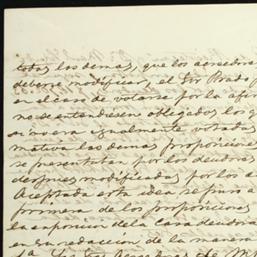 todos los demas, que los acreedores
deberia modificar el Sor Prado p
en el caso de votarse por la afir
no se entendiesen obligados los q
si no era igualmente votada
mativa las demas proposicione
se presentaban por los deudores
despues modificadas por los a
Aceptada esta idea se puso a
primera de las proposiciones
la esposicion de la Casa deudora
en su redaccion de la manera